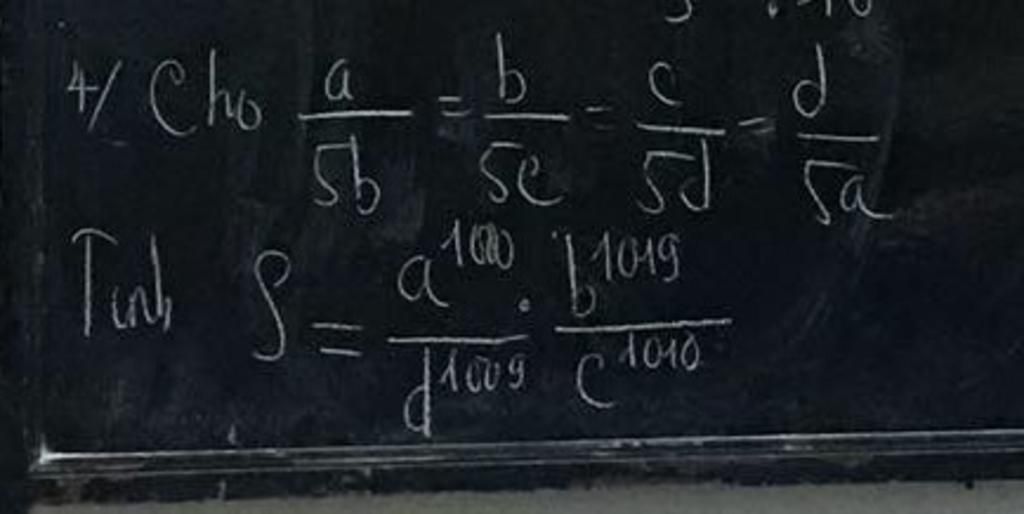 4/ Cho a/5b = b/5c = c/5d = d/5a
Tính S = a^1000/d^1009 . b^1019/c^1010